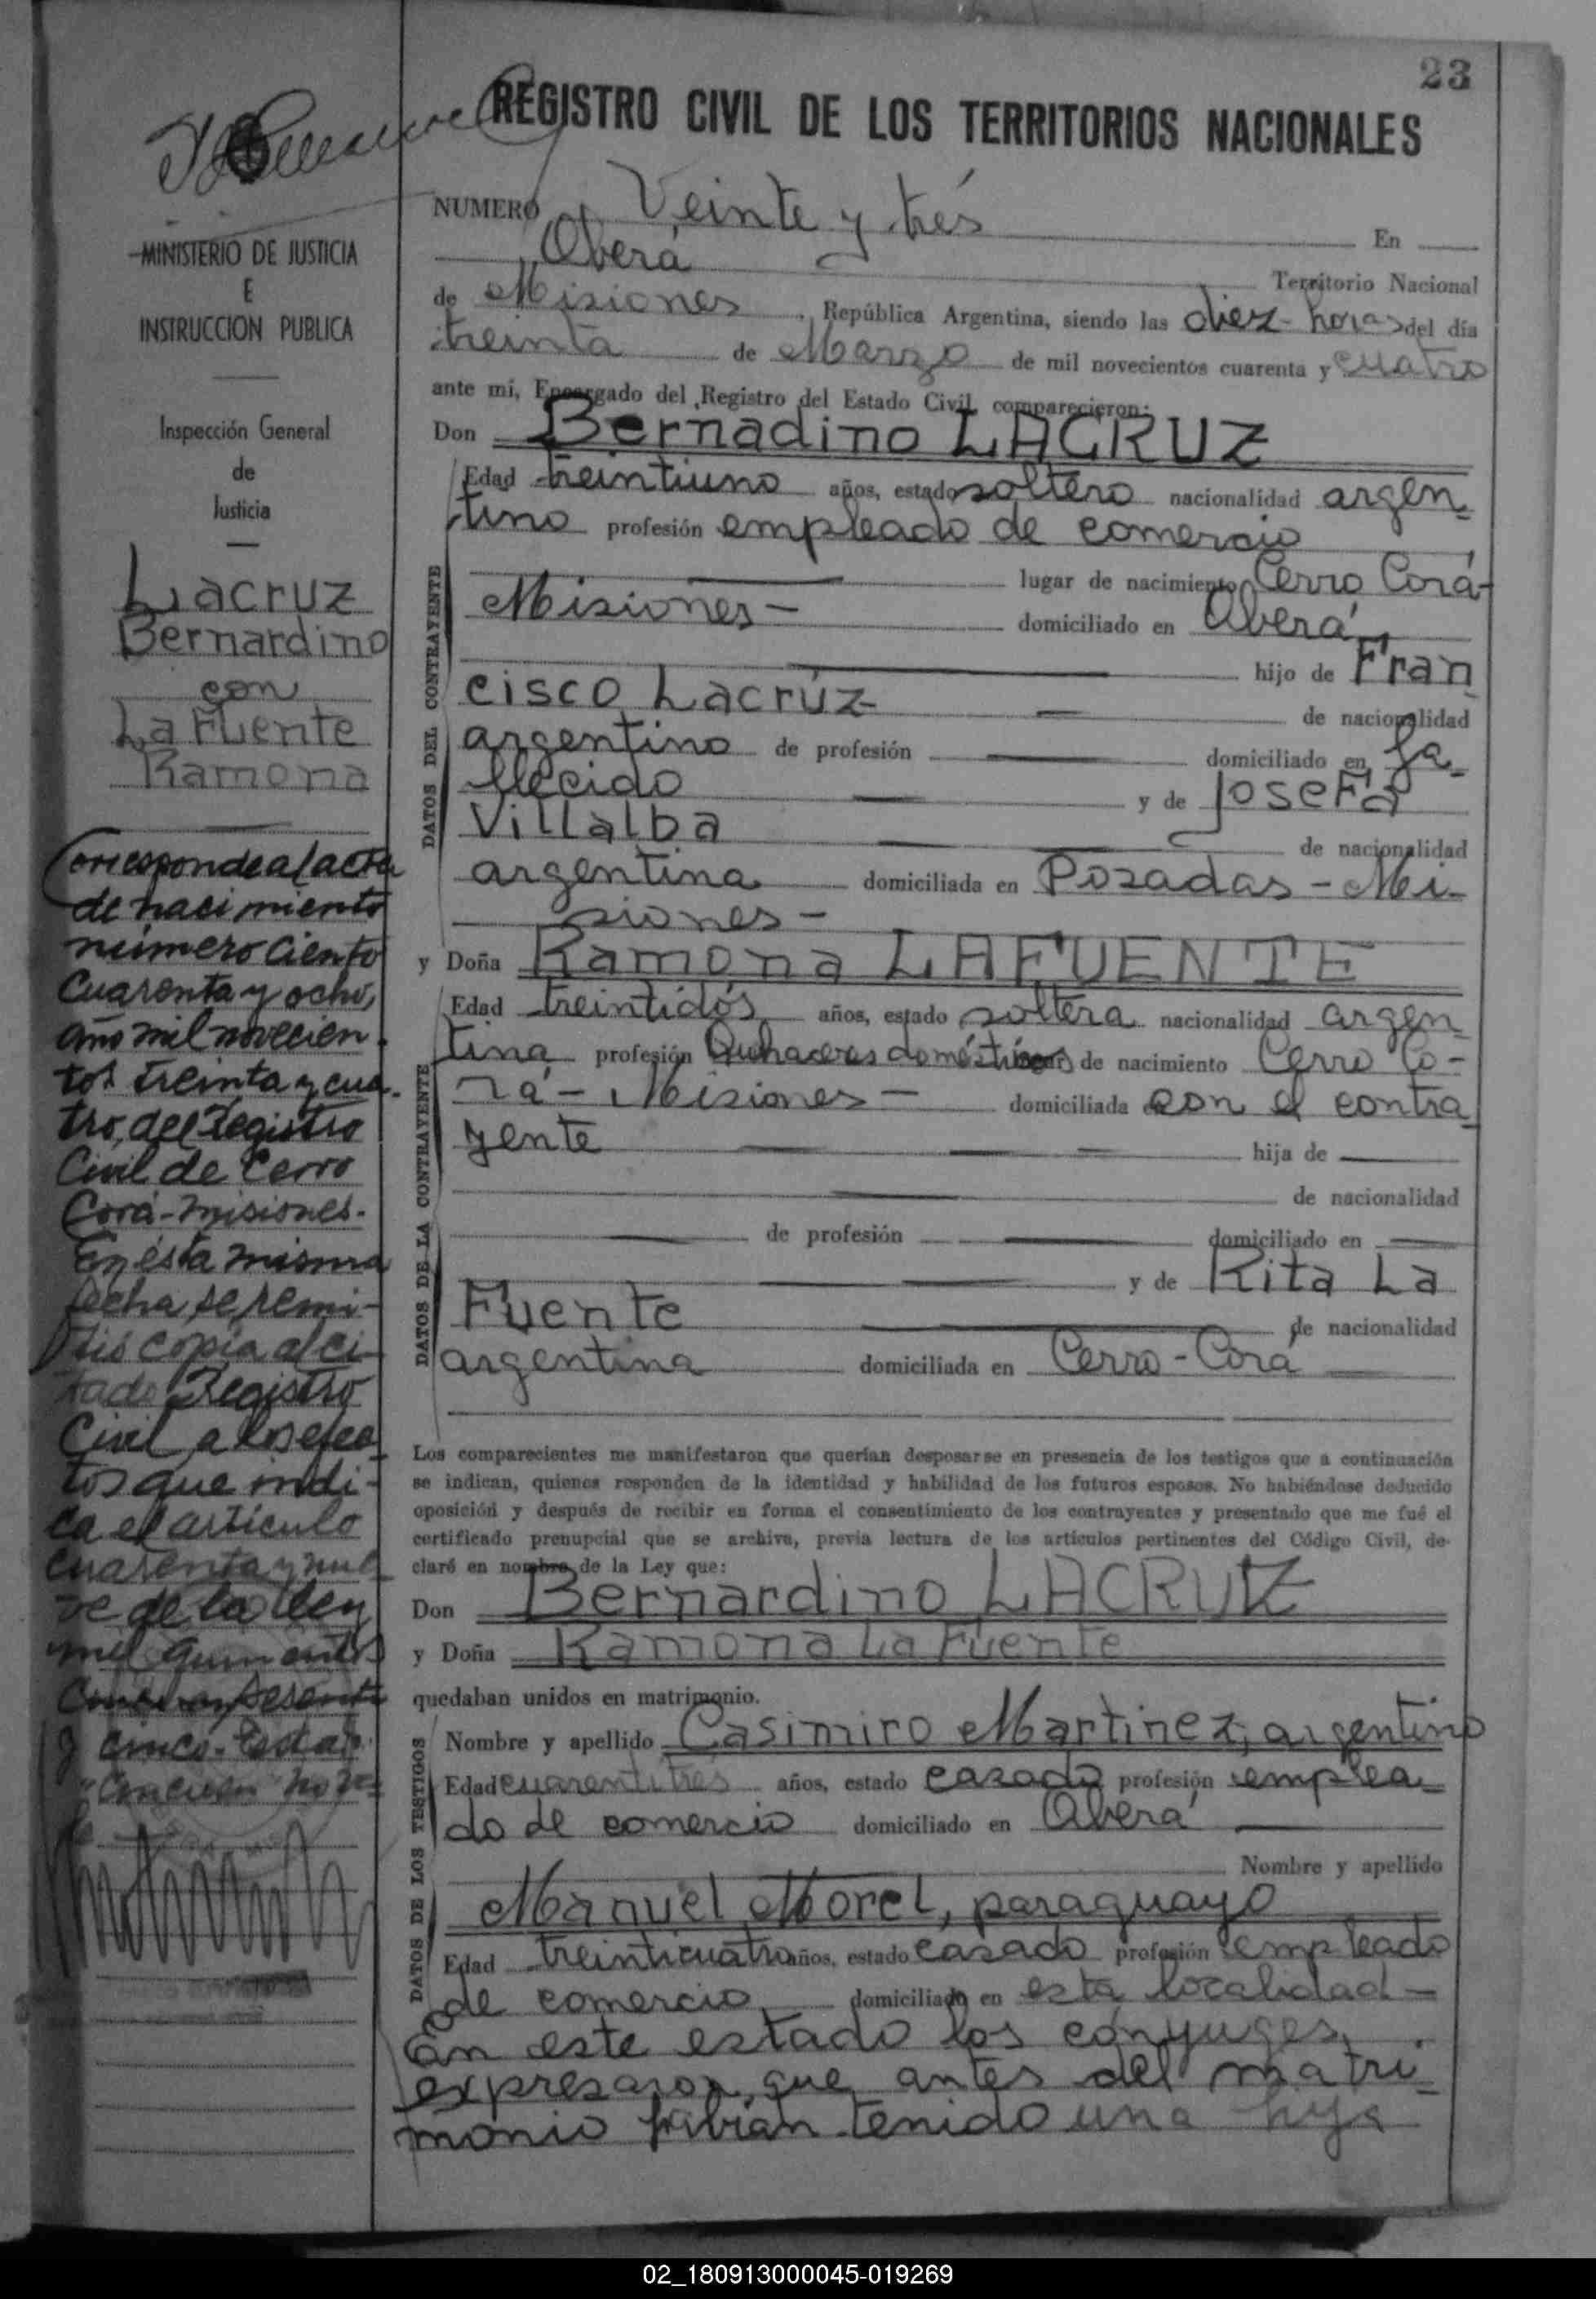 23
REGISTRO CIVIL DE LOS TERRITORIOS NACIONALES
MINISTERIO DE JUSTICIA
E
INSTRUCCION PUBLICA
Inspección General
de
Justicia
Lacruz
Bernardino
con
La Fuente
Ramona
Corresponde al acta
de nacimiento
número ciento
Cuarenta y ocho,
año mil novecien
tos treinta y cua-
tro, del Registro
Civil de Cerro
Corá-Misiones.
En ésta misma
fecha se remi-
tió copia al ci-
tado Registro
Civil a los efec
tos que indi-
ca el artículo
cuarenta y nue
ve de la ley
mil quinientos
y cinco.
NUMERO Veinte y trés En
Oberá Territorio Nacional
de Misiones, República Argentina, siendo las diez horas del día
treinta de Marzo de mil novecientos cuarenta y cuatro
ante mí, Encargado del Registro del Estado Civil, comparecieron:
Don Bernadino LACRUZ
Edad treintiuno años, estado soltero nacionalidad argen-
tino profesión empleado de comercio
lugar de nacimiento Cerro Corá-
Misiones- domiciliado en Oberá
hijo de Fran
cisco Lacrúz de nacionalidad
argentino de profesión domiciliado en fa-
llecido y de Josefa
Villalba de nacionalidad
argentina domiciliada en Posadas - Mi-
siones-
y Doña Ramona LAFUENTE
Edad treintidós años, estado soltera nacionalidad argen-
tina profesión Quehaceres domésticos lugar de nacimiento Cerro Co-
rá - Misiones - domiciliada en con el contra
yente hija de
de nacionalidad
de profesión domiciliado en
y de Rita La
Fuente de nacionalidad
argentina domiciliada en Cerro-Corá
DATOS DEL CONTRAYENTE
DATOS DE LA CONTRAYENTE
Los comparecientes me manifestaron que querían desposarse en presencia de los testigos que a continuación
se indican, quienes responden de la identidad y habilidad de los futuros esposos. No habiéndose deducido
oposición y después de recibir en forma el consentimiento de los contrayentes y presentado que me fué el
certificado prenupcial que se archiva, previa lectura de los artículos pertinentes del Código Civil, de-
claré en nombre de la Ley que:
Don Bernardino LACRUZ
y Doña Ramona La Fuente
quedaban unidos en matrimonio.
DATOS DE LOS TESTIGOS
Nombre y apellido Casimiro Martinez, argentino
Edad cuarentitrés años, estado casado profesión emplea-
do de comercio domiciliado en Oberá
Nombre y apellido
Manuel Morel, paraguayo
Edad treinticuatro años, estado casado profesión empleado
de comercio domiciliado en esta localidad -
En este estado los cónyuges,
expresaron que antes del matri-
monio habian tenido una hija
02_180913000045-019269